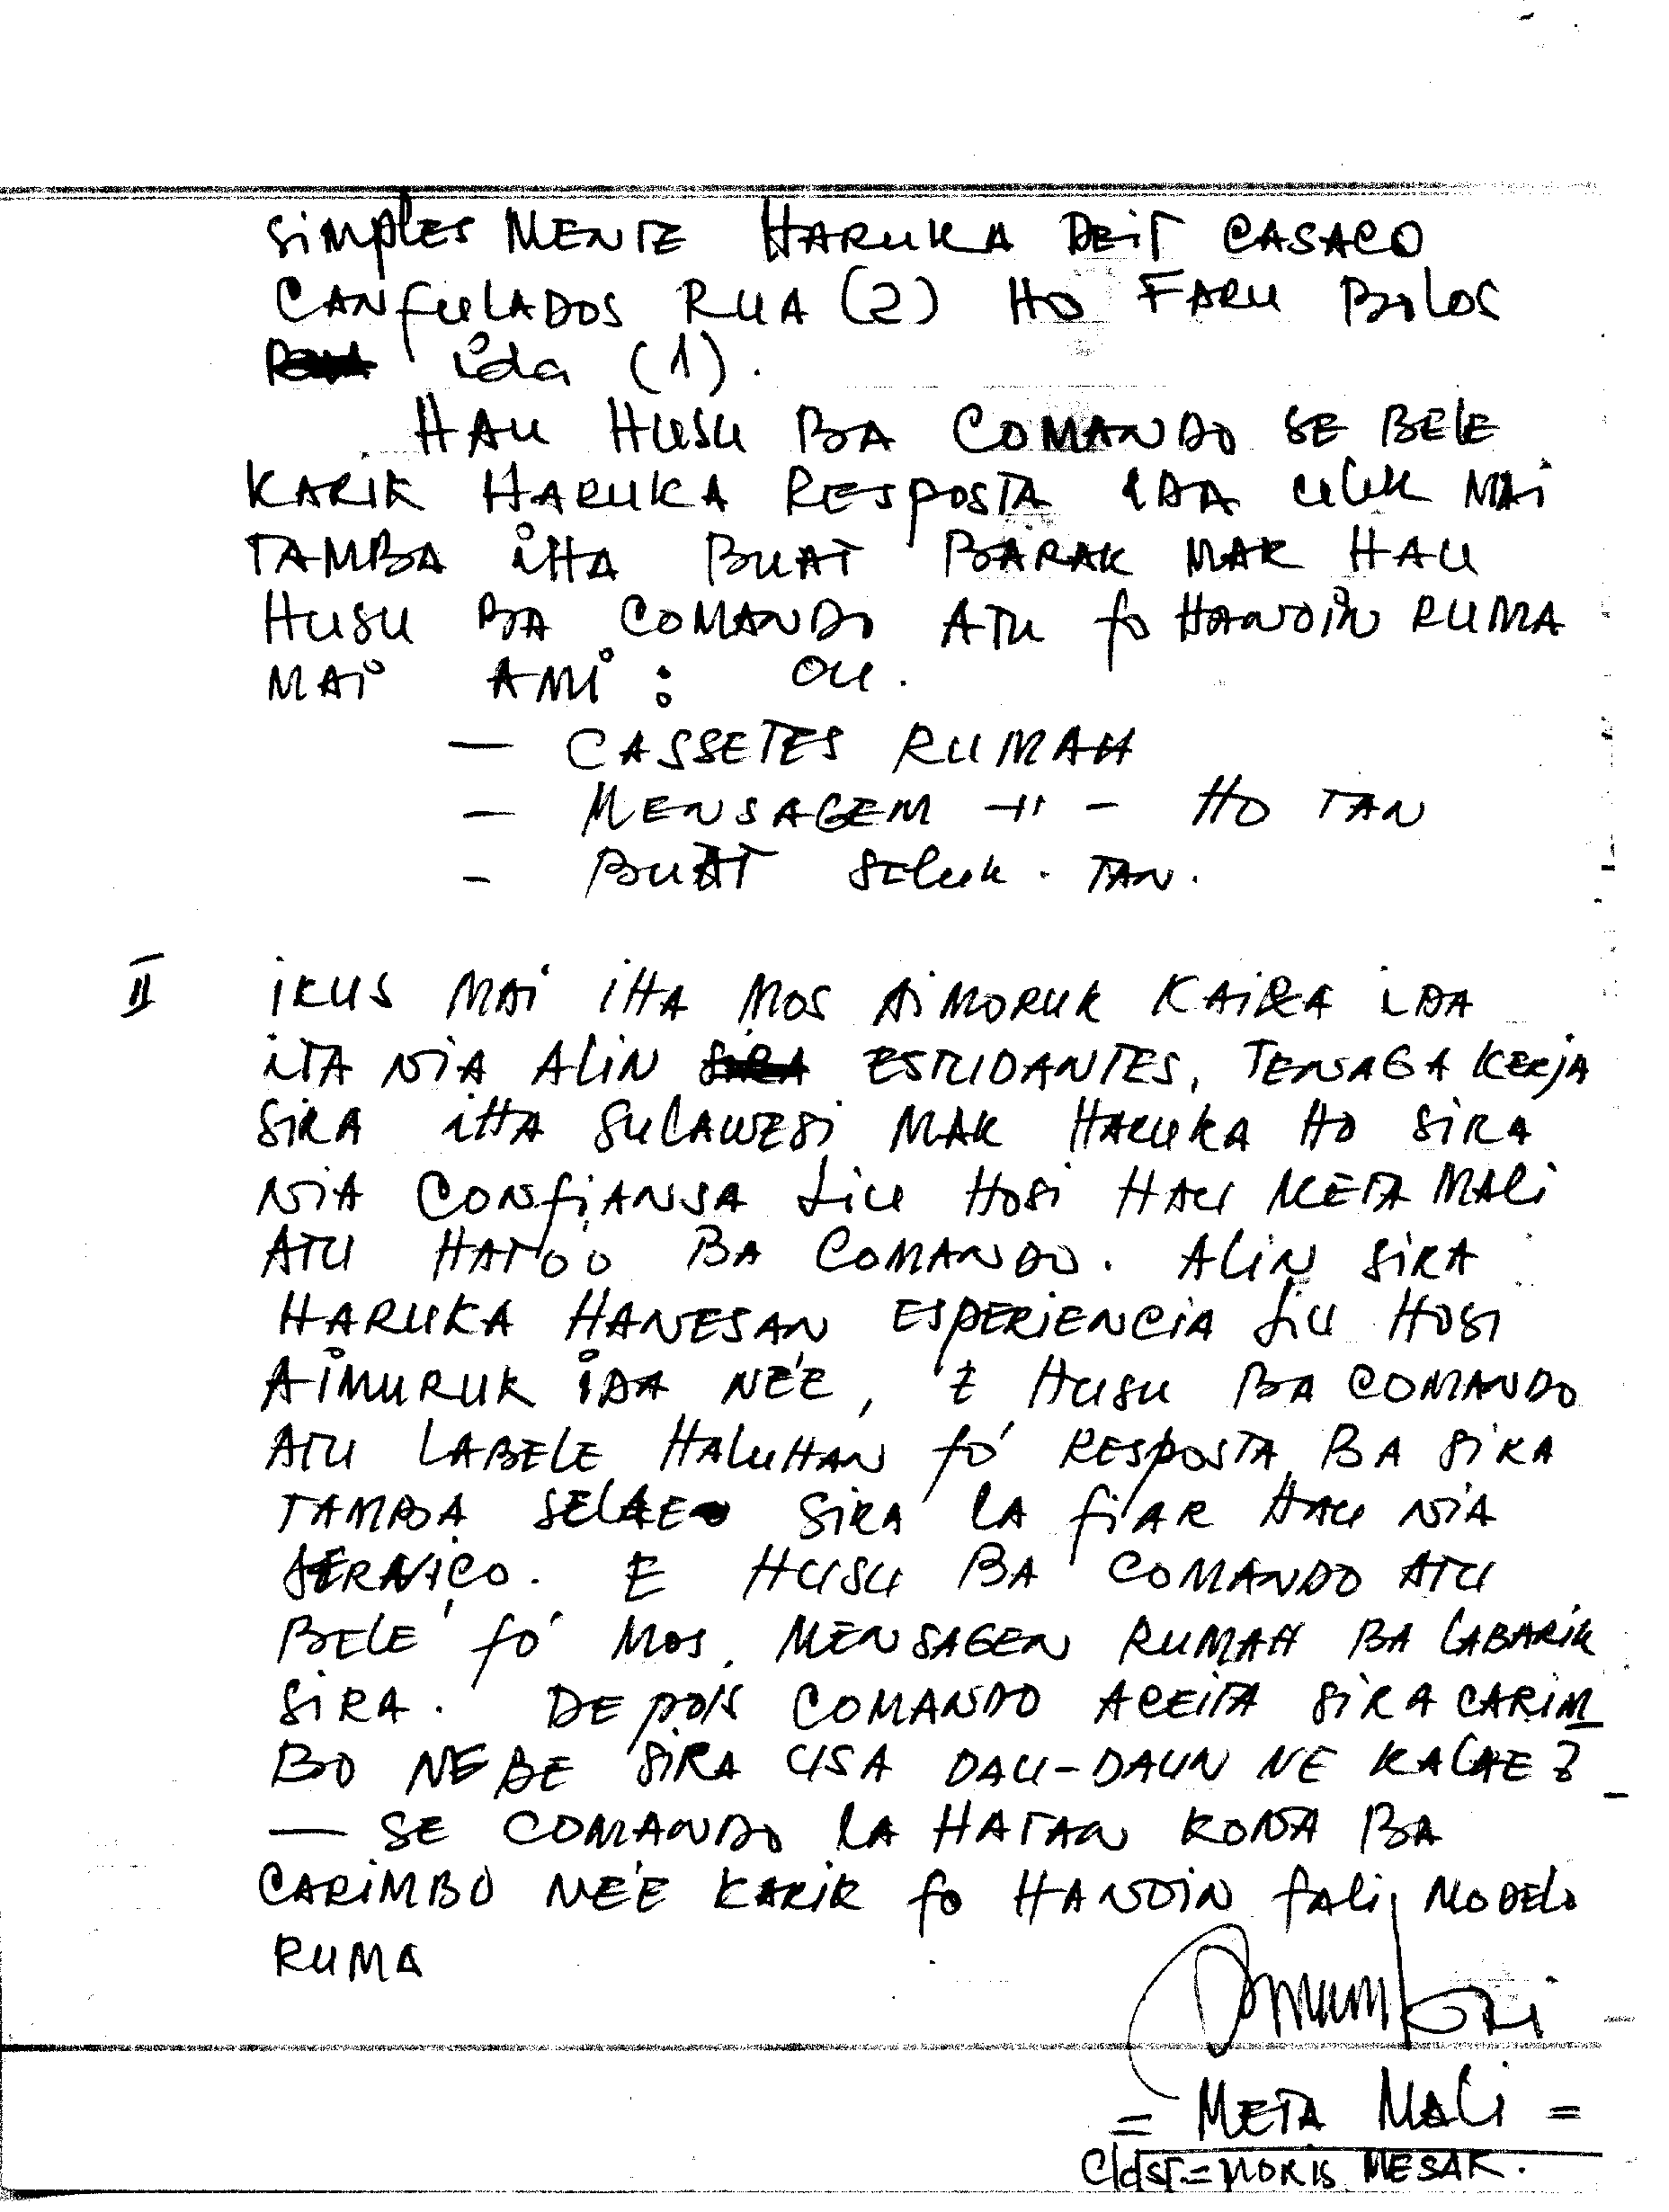 SIMPLES MENTE HARUKA DEIT CASACO
CANFULADOS RUA (2) HO FARU BOLOS
ida (1).
HAU HUSU BA COMANDO SE BELE
KARIK HARUKA RESPOSTA IDA ULUK MAI
TAMBA IHA BUAT BARAK MAK HAU
HUSU BA COMANDO ATU fo HANOIN RUMA
MAI AMI : OU.
— CASSETES RUMAH
— MENSAGEM -"- HO TAN
- BUAT SELUK. TAN.
II IKUS MAI IHA MOS AIMORUK KAIXA IDA
ITA NIA ALIN ESTUDANTES, TENAGA KERJA
SIRA IHA SULAWESI MAK HARUKA HO SIRA
NIA CONFIANSA LIU HOSI HAU META MALI
ATU HATOO BA COMANDO. ALIN SIRA
HARUKA HANESAN ESPERIENCIA LIU HOSI
AIMURUK IDA NE'E, E HUSU BA COMANDO
ATU LABELE HALUHAN fó RESPOSTA BA SIRA
TAMBA SELAE SIRA LA FIAR HAU NIA
SERVIÇO. E HUSU BA COMANDO ATU
BELE fó MOS, MENSAGEN RUMAH BA LABARIK
SIRA. DE POIS COMANDO ACEITA SIRA CARIM
BO NEBE SIRA USA DAU-DAUN NE KALAE?
— SE COMANDO LA HATAN KONA BA
CARIMBO NE'E KARIK fo HANOIN fali MODELO
RUMA
= META MALI =
C/dst = MORIS MESAK.